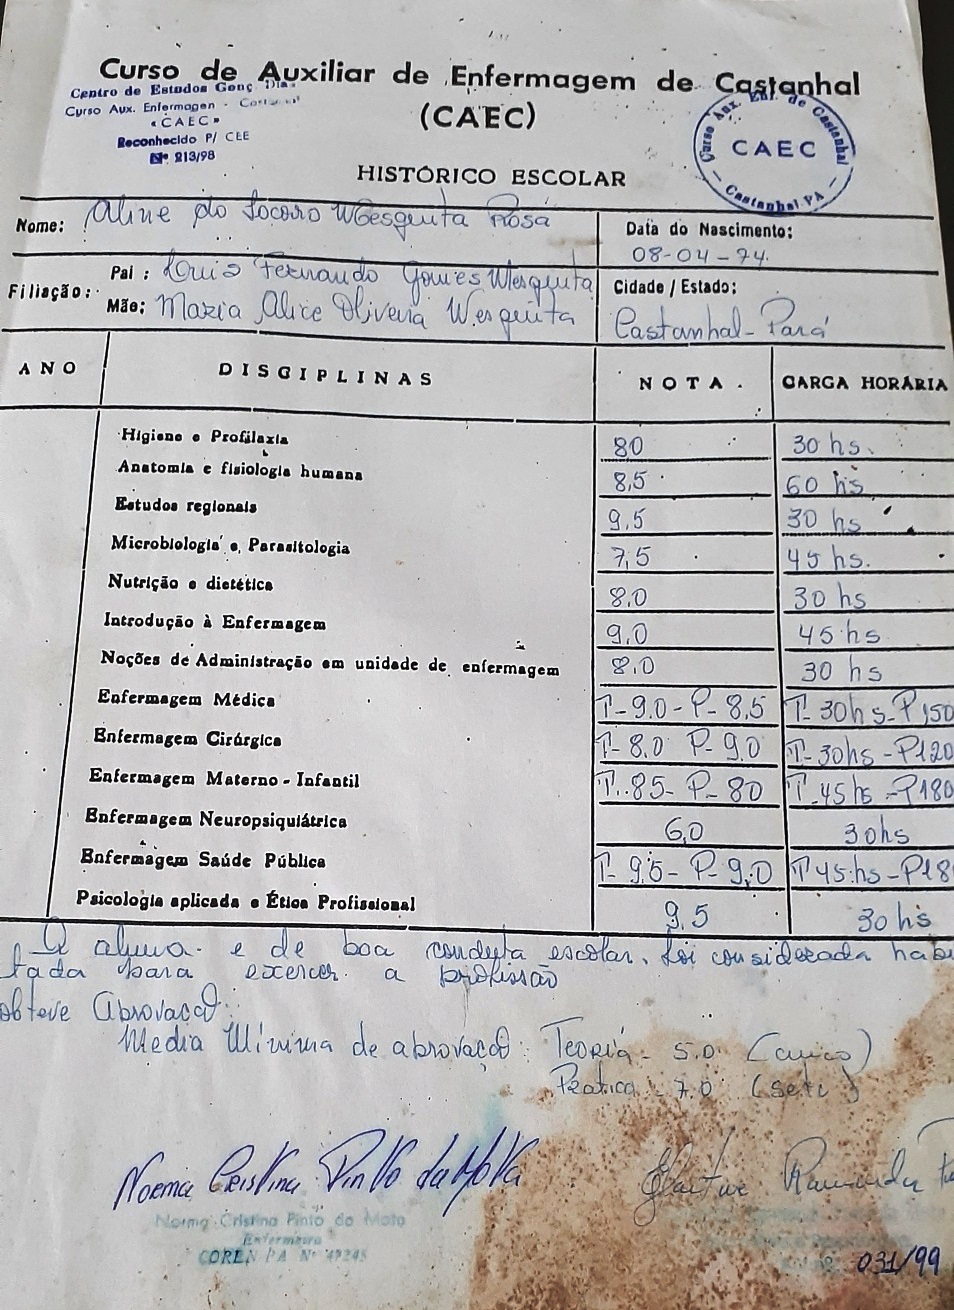 Curso de Auxiliar de Enfermagem de Castanhal
(CAEC)
Centro de Estudos Gonç. Dias
Curso Aux. Enfermagen - Castanhal
«CAEC»
Reconhecido P/ CEE
Nº 213/98
Curso Aux. Enf. de Castanhal
CAEC
Castanhal PA
HISTÓRICO ESCOLAR
Nome: Aline do Socoro Mesquita Rosa
Data do Nascimento:
08-04-74.
Filiação:
Pai: Luis Fernando Gomes Mesquita
Mãe: Maria Alice Oliveira Mesquita
Cidade / Estado:
Castanhal - Pará
ANO DISCIPLINAS NOTA. CARGA HORÁRIA
Higiene e Profilaxia 80 30 hs.
Anatomia e fisiologia humana 8,5 60 hs
Estudos regionais 9,5 30 hs
Microbiologia e Parasitologia 7,5 45 hs.
Nutrição e dietética 8.0 30 hs
Introdução à Enfermagem 9,0 45 hs
Noções de Administração em unidade de enfermagem 8.0 30 hs
Enfermagem Médica T-9.0-P-8.5 T-30hs-P150
Enfermagem Cirúrgica T-8.0 P-9.0 T-30hs-P120
Enfermagem Materno-Infantil T-85-P-80 T-45hs-P180
Enfermagem Neuropsiquiátrica 6,0 30hs
Enfermagem Saúde Pública T-9.5-P-9,0 T45hs-P18
Psicologia aplicada e Ética Profissional 9,5 30 hs
A aluna e de boa conduta escolar, foi considerada habi
tada para excercer a profissão
obteve Aprovação.
Media Mínima de aprovação: Teoria - 5.0 (cinco)
Pratica - 7.0 (sete)
Norma Cristina Pinto da Mota
Raimunda
Norma Cristina Pinto da Mota
Enfermeira
COREN PA Nº 49245
031/99